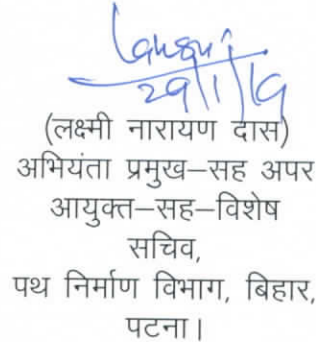 Laxmi
29/1/19
(लक्ष्मी नारायण दास)
अभियंता प्रमुख–सह अपर
आयुक्त–सह–विशेष
सचिव,
पथ निर्माण विभाग, बिहार,
पटना।